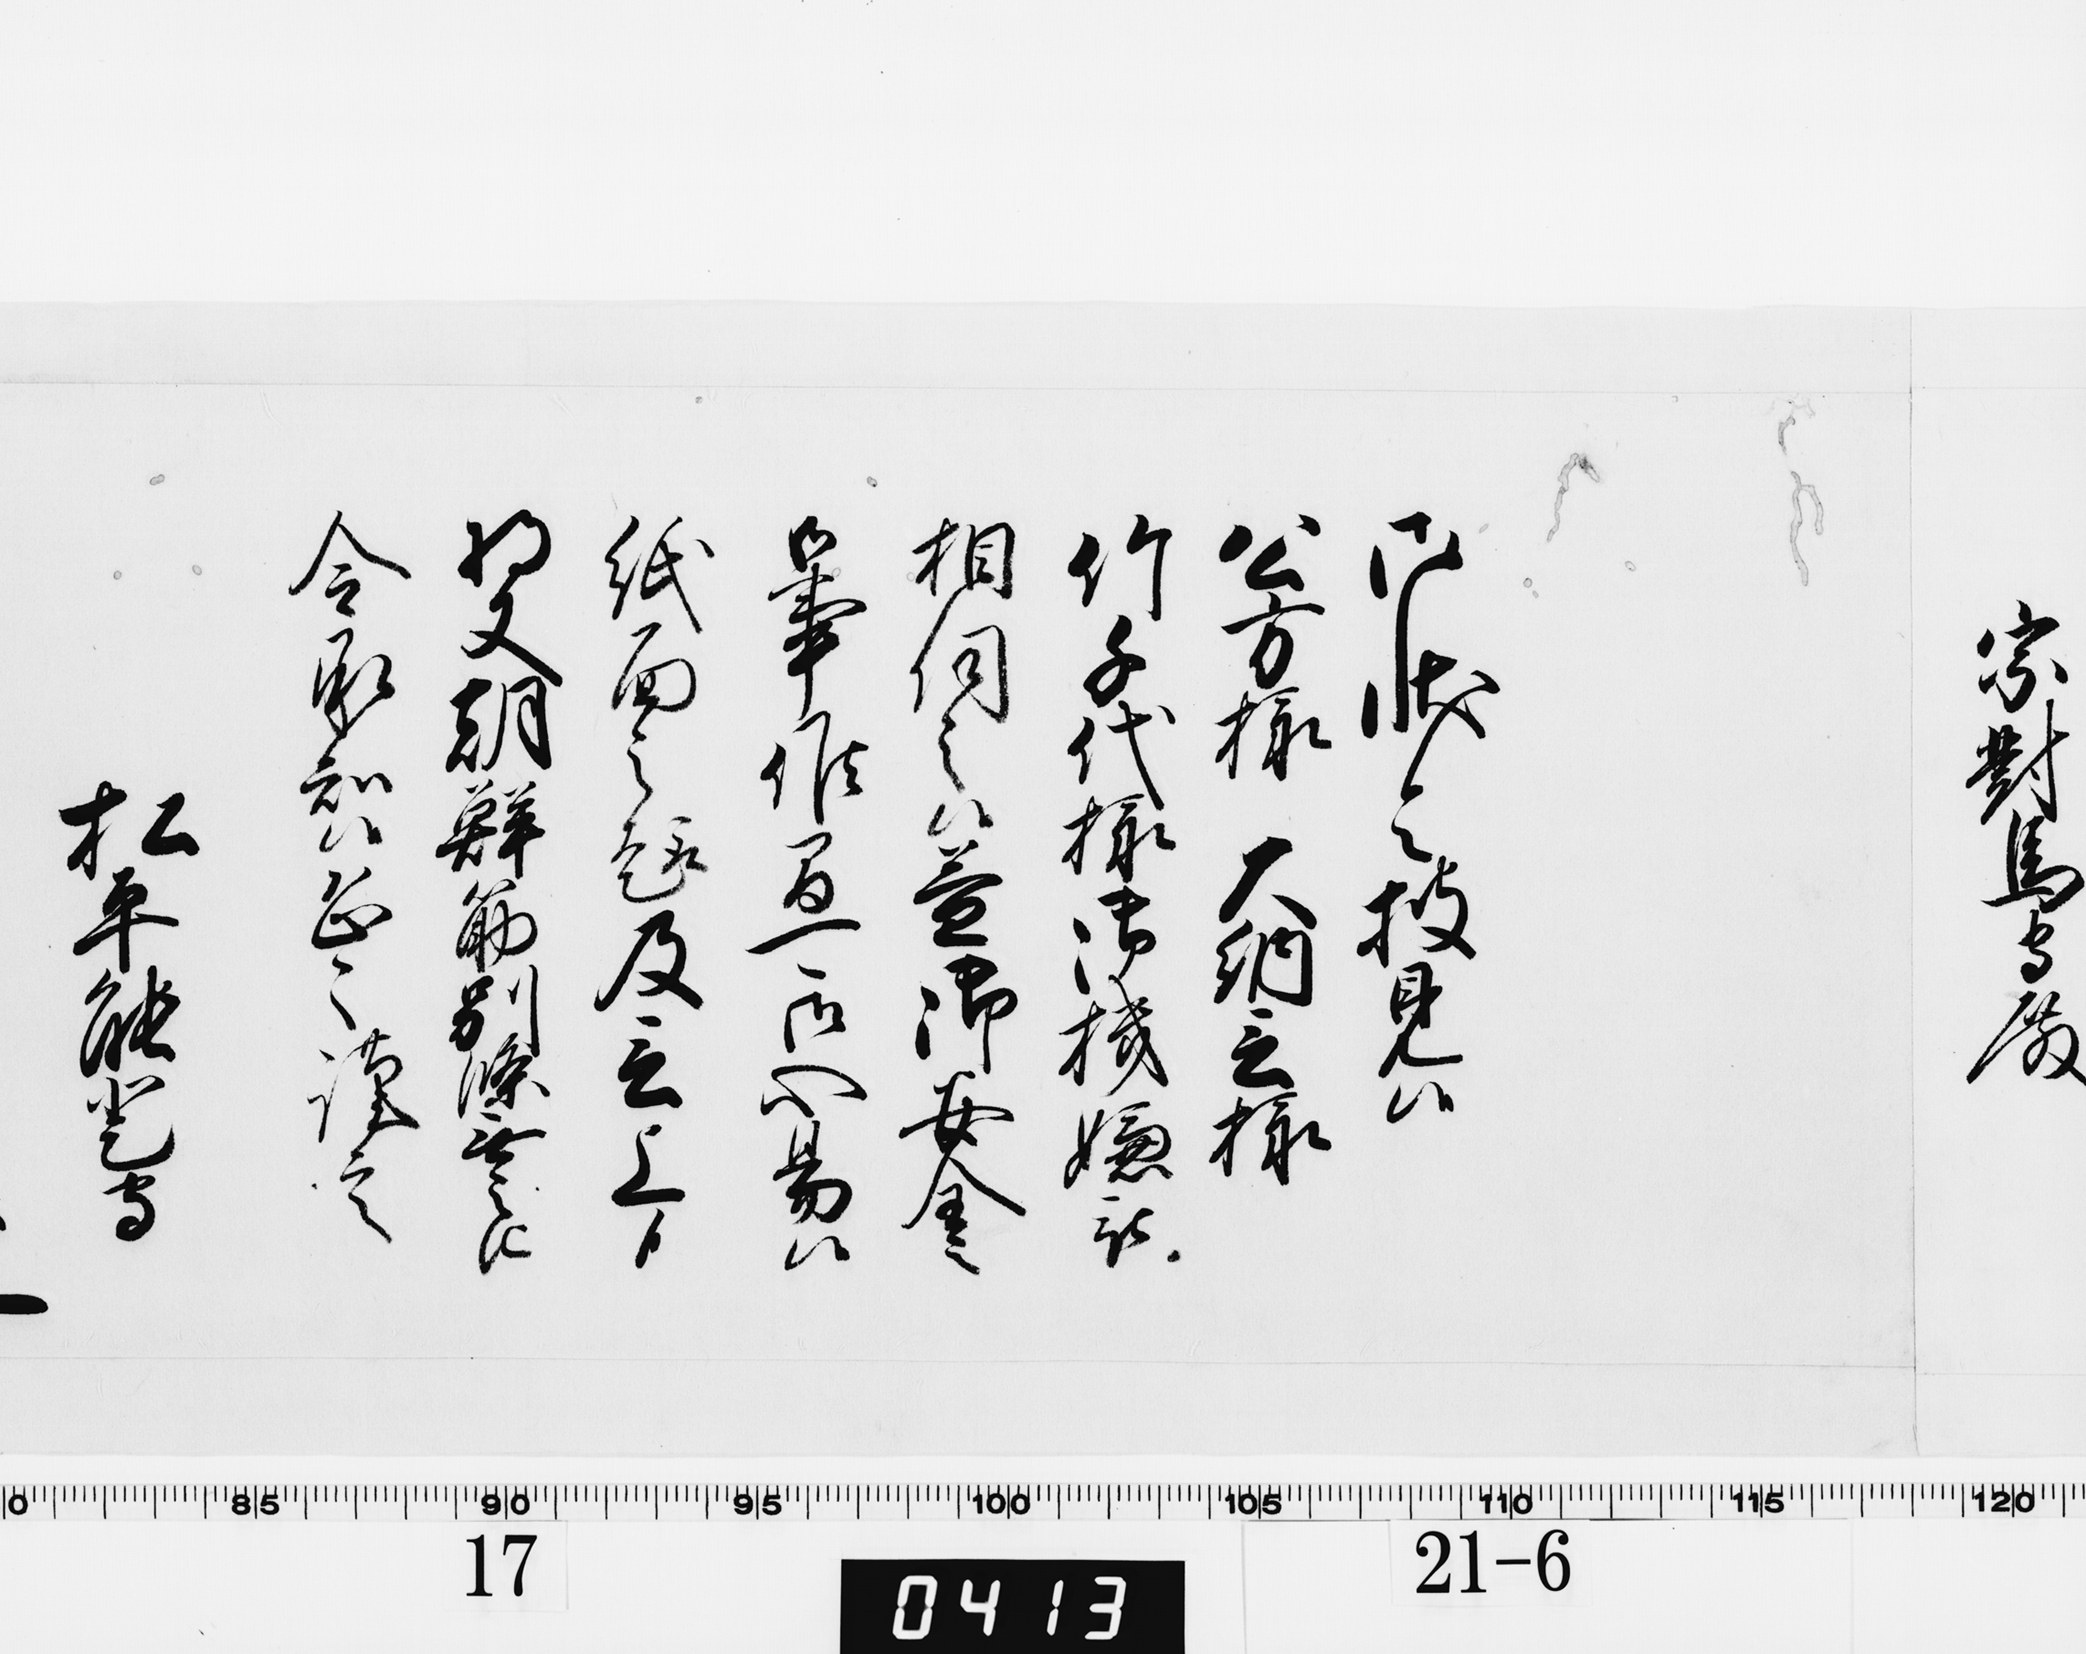 宗對馬守殿
御状令披見候
公方様　大納言様
竹千代様御機嫌被
相伺之候益御安全
御事候間可心易候
紙面之趣及言上候
将又朝鮮筋別條無之由
令承知候恐々謹言
松平能登守
0 85 90 95 100 105 110 115 120
17
21-6
0413